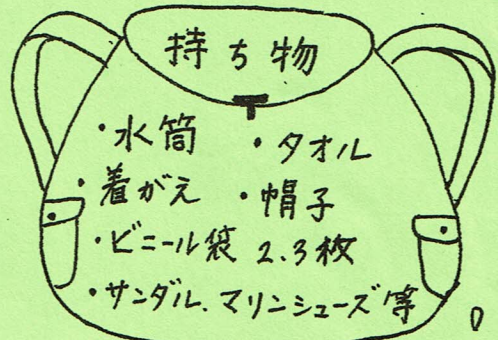 持ち物
・水筒 ・タオル
・着がえ ・帽子
・ビニール袋 2.3枚
・サンダル、マリンシューズ等